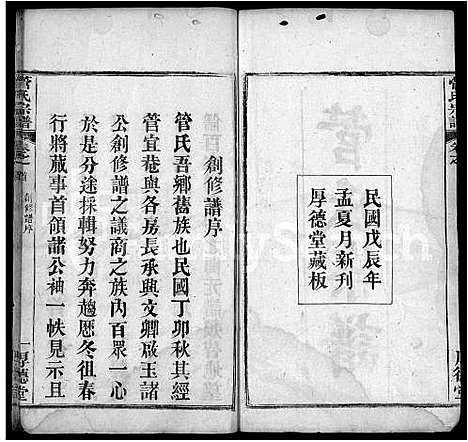 管氏宗譜
民國戊辰年
孟夏月新刊
厚德堂藏板
創修譜序
管氏吾鄉舊族也民國丁卯秋其經
管宜菴與各房長承興文卿啟玉諸
公創修譜之議商之族內百眾一心
於是分途採輯努力奔趨歷冬徂春
行將蕆事首領諸公袖一帙見示且
管氏宗譜
卷之首
創修譜序
一
厚德堂